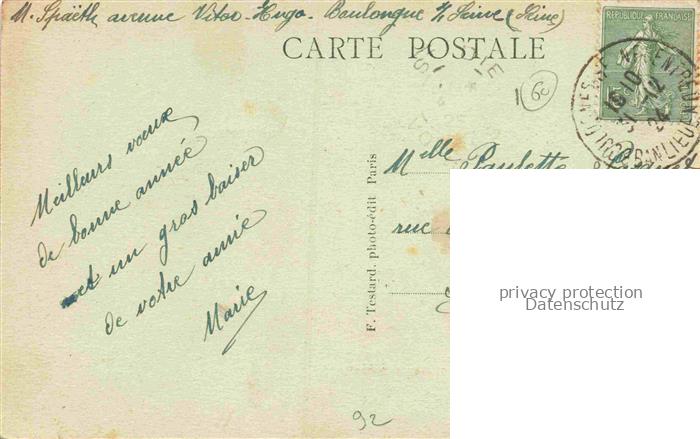 M. Spaëth avenue Vitor-Hugo. Boulongue s/ Seine (Seine)
CARTE POSTALE
REPUBLIQUE FRANÇAISE
60
Meilleurs vœux
de bonne année
et un gros baiser
de votre amie
Marie
F. Testard, photo-édit Paris
Mlle Paulette
rue
16 10
31 12
24
92
privacy protection
Datenschutz